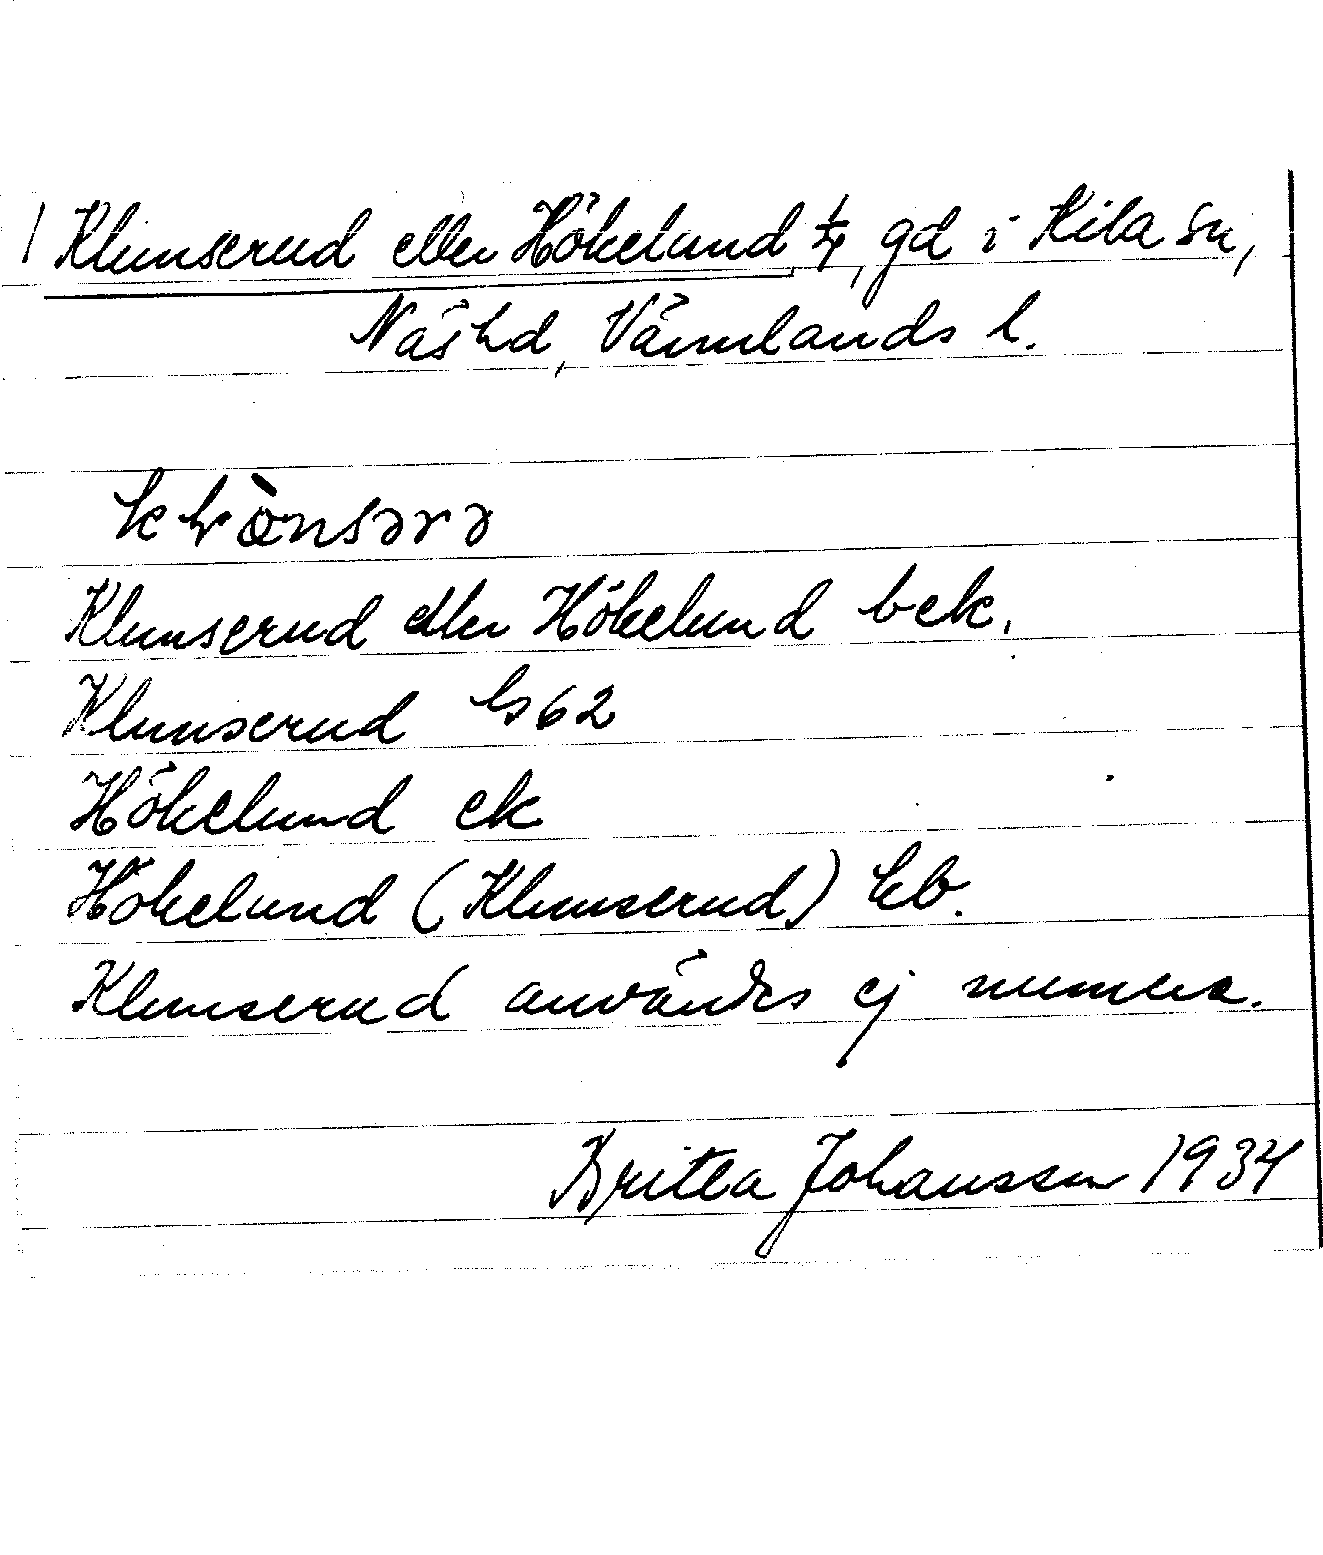 1 Klunserud eller Hökelund 1/4, gd i Kila sn,
Näs hd, Värmlands l.
Klunserud eller Hökelund bek.
Klunserud Gs 62
Hökelund ek
Hökelund (Klunserud) kb.
Klunserud användes ej numera.
Britta Johansson 1934